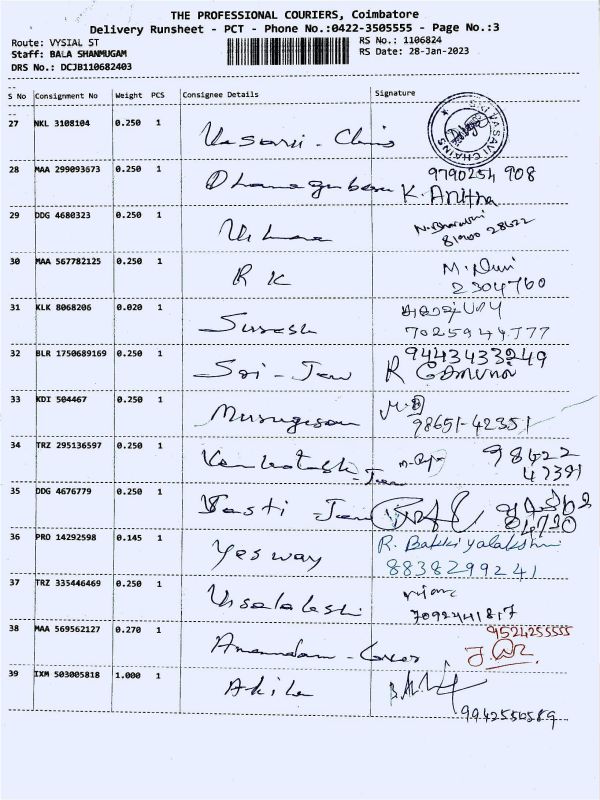 THE PROFESSIONAL COURIERS, Coimbatore
Delivery Runsheet - PCT - Phone No.:0422-3505555 - Page No.:3
Route: VYSIAL ST
RS No.: 1106824
Staff: BALA SHANMUGAM
RS Date: 28-Jan-2023
DRS No.: DCJB110682403
S No Consignment No Weight PCS Consignee Details Signature
27 NKL 3108104 0.250 1
SRI VASAVI CHAINS
28 MAA 299093673 0.250 1 9790254 908
K. Anitha
29 DDG 4680323 0.250 1
30 MAA 567782125 0.250 1 R K
2304760
31 KLK 8068206 0.020 1 Suresh
7025944777
32 BLR 1750689169 0.250 1 9443433249
Sri - Jew R
33 KDI 504467 0.250 1 Murugesan
98651-42351
34 TRZ 295136597 0.250 1 98422
47391
35 DDG 4676779 0.250 1
36 PRO 14292598 0.145 1 Yesway R. Bakkiyalakshmi
8838299241
37 TRZ 335446469 0.250 1 Visalatchi
7092441817
38 MAA 569562127 0.270 1 9524255555
39 IXM 503005818 1.000 1 Akila
9942556589